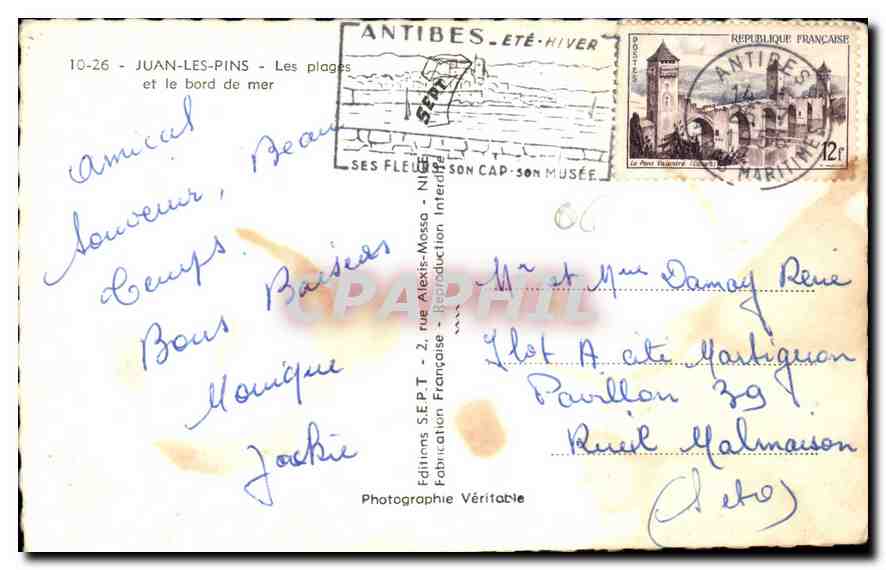 10-26 - JUAN-LES-PINS - Les plages
et le bord de mer
ANTIBES - ETÉ - HIVER
SEPT
SES FLEURS - SON CAP - SON MUSÉE
REPUBLIQUE FRANÇAISE
POSTES
Le Pont Valentré (Cahors)
12F
ANTIBES
14
MARITIMES
Amical
Souvenir, Beau
Temps.
Bons Baisers
Monique
Jackie
Editions S.E.P.T - 2, rue Alexis-Mossa - NICE
Fabrication Française - Reproduction Interdite
Photographie Véritable
06
Mr et Mme Damay René
Ilot A cité Martignon
Pavillon 39
Rueil Malmaison
(S et O)
CPAPHIL